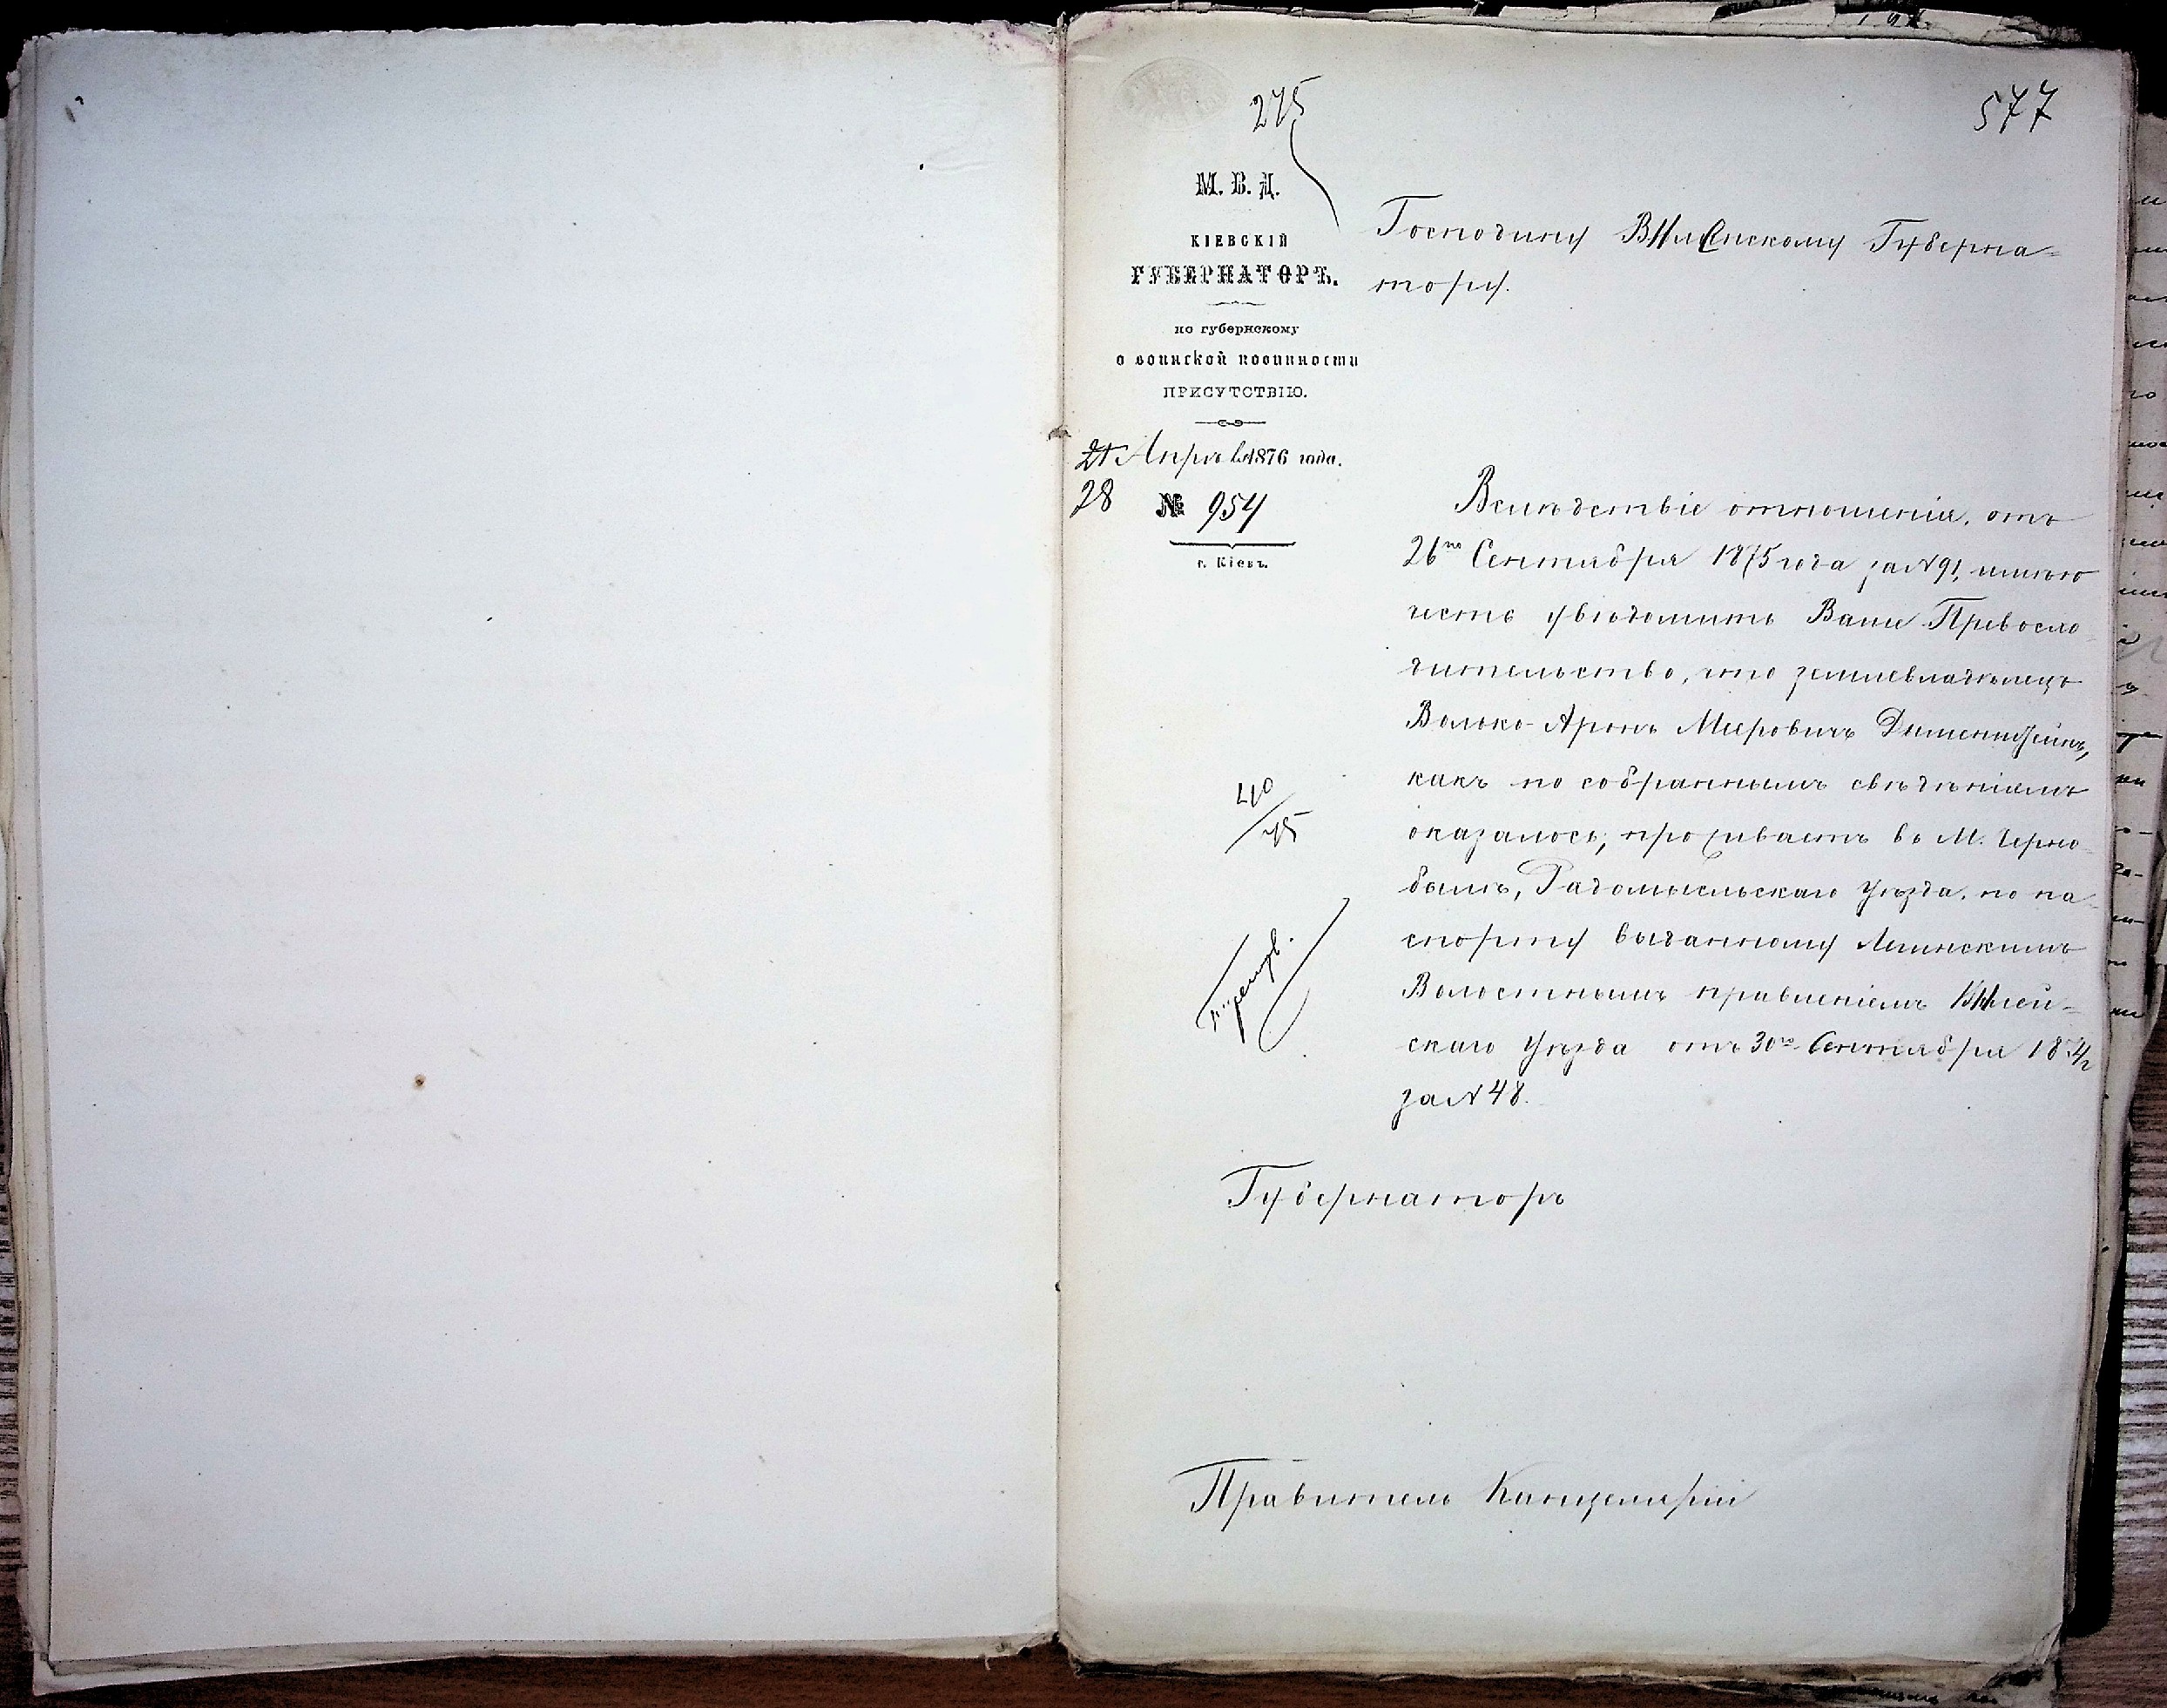 275
577
М. В. Д.
КІЕВСКІЙ
ГУБЕРНАТОРЪ.
по губернскому
о воинской повинности
ПРИСУТСТВІЮ.
21 Апрѣля 1876 года.
28 № 954
г. Кіевъ.
Господину Виленскому Губерна=
тору.
Вслѣдствіе отношенія, отъ
26го Сентября 1875 года за N 91, имѣю
честь увѣдомить Ваше Превосхо-
дительство, что землевладѣлецъ
Волько-Аронъ Мееровичъ
какъ по собраннымъ свѣдѣніямъ
оказалось, проживаетъ въ М. Черно-
былѣ, Радомысльскаго уѣзда, по па-
спорту выданному
Волостнымъ правленіемъ Вилей-
скаго уѣзда отъ 30го Сентября 187
за N 48.
40/75
Губернаторъ
Правитель Канцеляріи